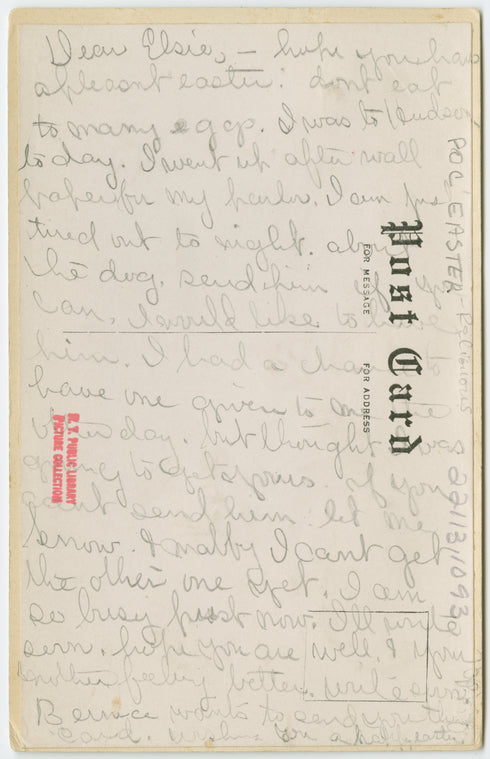 Dear Elsie, - hope you have
a pleasant easter. dont eat
to many eggs. I was to Hudson
to day. I went up after wall
paper for my parlor. I am jus
tired out to night. about
the dog. send him if you
can, I would like to have
him. I had a chance to
have one given to me the
other day. but thought I was
going to get yours if you
cant send him let me
know. & mabby I cant get
the other one yet. I am
so busy just now. I'll write
soon. hope you are well. & your
mother feeling better. write soon
Bernice wants to send you this
card. wishing you a happy easter
Post Card
FOR MESSAGE
FOR ADDRESS
POC: EASTER - Religious
N. Y. PUBLIC LIBRARY
PICTURE COLLECTION